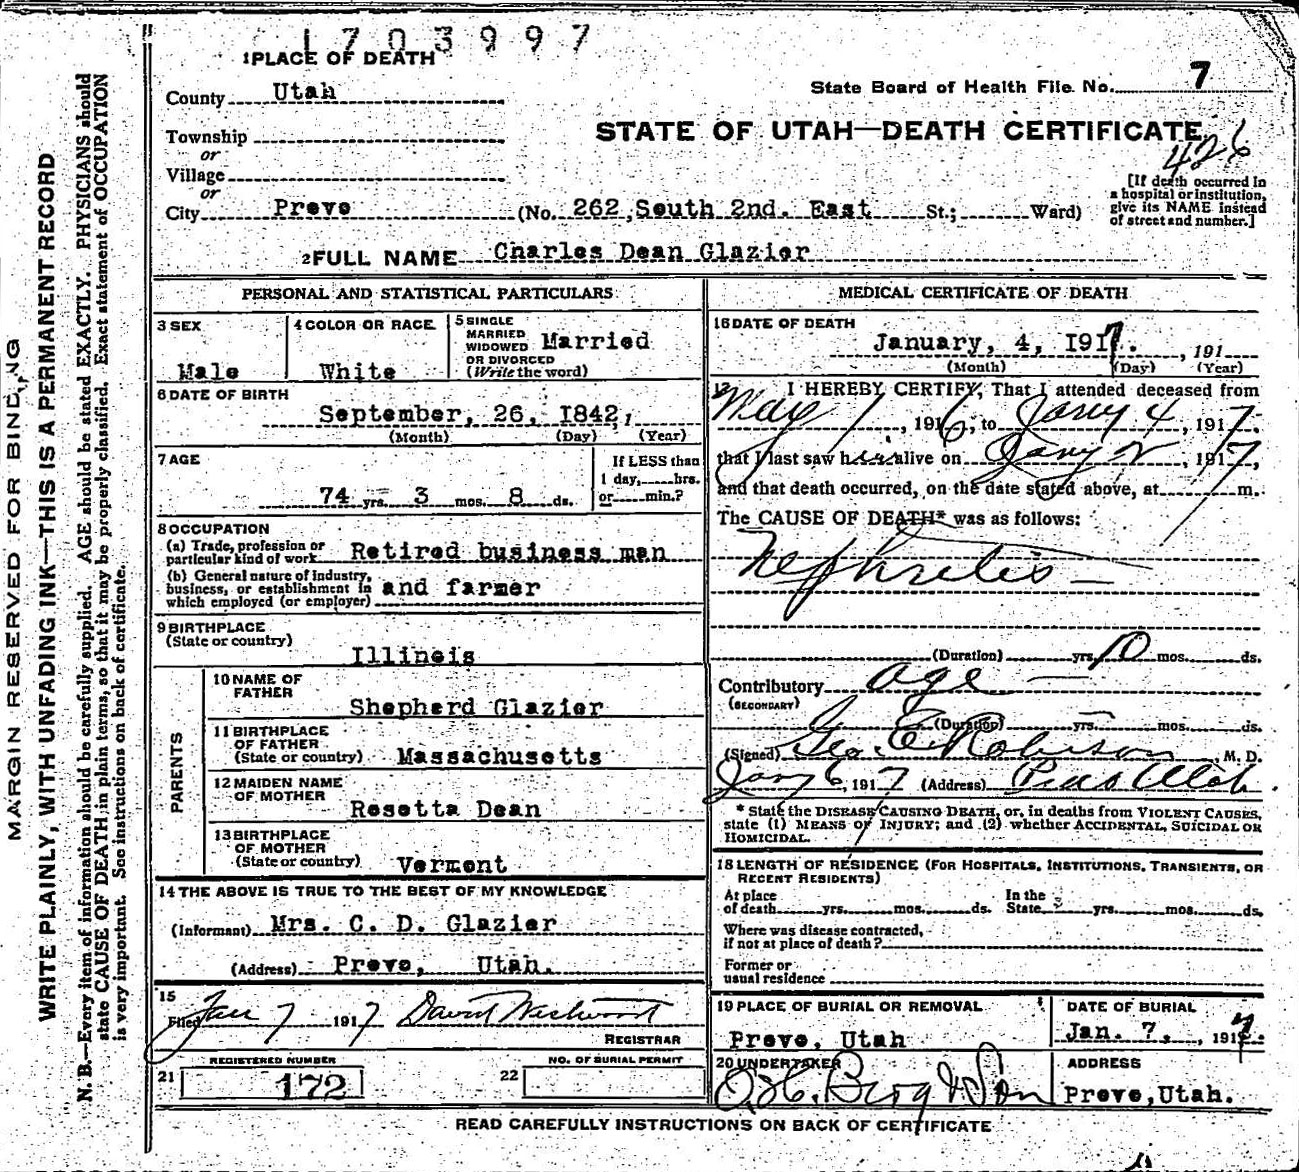 1703997
1 PLACE OF DEATH
County Utah
State Board of Health File No. 7
Township
or
STATE OF UTAH—DEATH CERTIFICATE
426
Village
or
City Provo (No. 262 South 2nd. East St.; Ward)
[If death occurred in
a hospital or institution,
give its NAME instead
of street and number.]
2 FULL NAME Charles Dean Glazier
PERSONAL AND STATISTICAL PARTICULARS
3 SEX
Male
4 COLOR OR RACE
White
5 SINGLE
MARRIED
WIDOWED
OR DIVORCED
(Write the word)
Married
6 DATE OF BIRTH
September, 26, 1842,
(Month) (Day) (Year)
7 AGE
74 yrs. 3 mos. 8 ds.
If LESS than
1 day, hrs.
or min.?
8 OCCUPATION
(a) Trade, profession or
particular kind of work Retired business man
(b) General nature of industry,
business, or establishment in
which employed (or employer) and farmer
9 BIRTHPLACE
(State or country)
Illinois
PARENTS
10 NAME OF
FATHER
Shepherd Glazier
11 BIRTHPLACE
OF FATHER
(State or country) Massachusetts
12 MAIDEN NAME
OF MOTHER
Rosetta Dean
13 BIRTHPLACE
OF MOTHER
(State or country) Vermont
14 THE ABOVE IS TRUE TO THE BEST OF MY KNOWLEDGE
(Informant) Mrs. C. D. Glazier
(Address) Provo, Utah.
15
Filed Jan 7 1917 David Westwood
REGISTRAR
REGISTERED NUMBER
21 172
NO. OF BURIAL PERMIT
22
MEDICAL CERTIFICATE OF DEATH
16 DATE OF DEATH
January, 4, 1917. , 191
(Month) (Day) (Year)
17 I HEREBY CERTIFY, That I attended deceased from
May 1, 1916, to Jany 4, 1917,
that I last saw him alive on Jany 2, 1917,
and that death occurred, on the date stated above, at m.
The CAUSE OF DEATH* was as follows:
Nephritis
(Duration) yrs. 10 mos. ds.
Contributory age
(SECONDARY)
(Duration) yrs. mos. ds.
(Signed) Geo. E. Robison, M. D.
Jany 6, 1917 (Address) Provo Utah.
* State the DISEASE CAUSING DEATH, or, in deaths from VIOLENT CAUSES,
state (1) MEANS OF INJURY; and (2) whether ACCIDENTAL, SUICIDAL OR
HOMICIDAL.
18 LENGTH OF RESIDENCE (FOR HOSPITALS, INSTITUTIONS, TRANSIENTS, OR
RECENT RESIDENTS)
At place
of death yrs. mos. ds.
In the
State yrs. mos. ds.
Where was disease contracted,
if not at place of death?
Former or
usual residence
19 PLACE OF BURIAL OR REMOVAL
Provo, Utah
DATE OF BURIAL
Jan. 7, , 1917.
20 UNDERTAKER
O. H. Berg & Son
ADDRESS
Provo, Utah.
READ CAREFULLY INSTRUCTIONS ON BACK OF CERTIFICATE
MARGIN RESERVED FOR BINDING
WRITE PLAINLY, WITH UNFADING INK—THIS IS A PERMANENT RECORD
N. B.—Every item of information should be carefully supplied. AGE should be stated EXACTLY. PHYSICIANS should
state CAUSE OF DEATH in plain terms, so that it may be properly classified. Exact statement of OCCUPATION
is very important. See instructions on back of certificate.